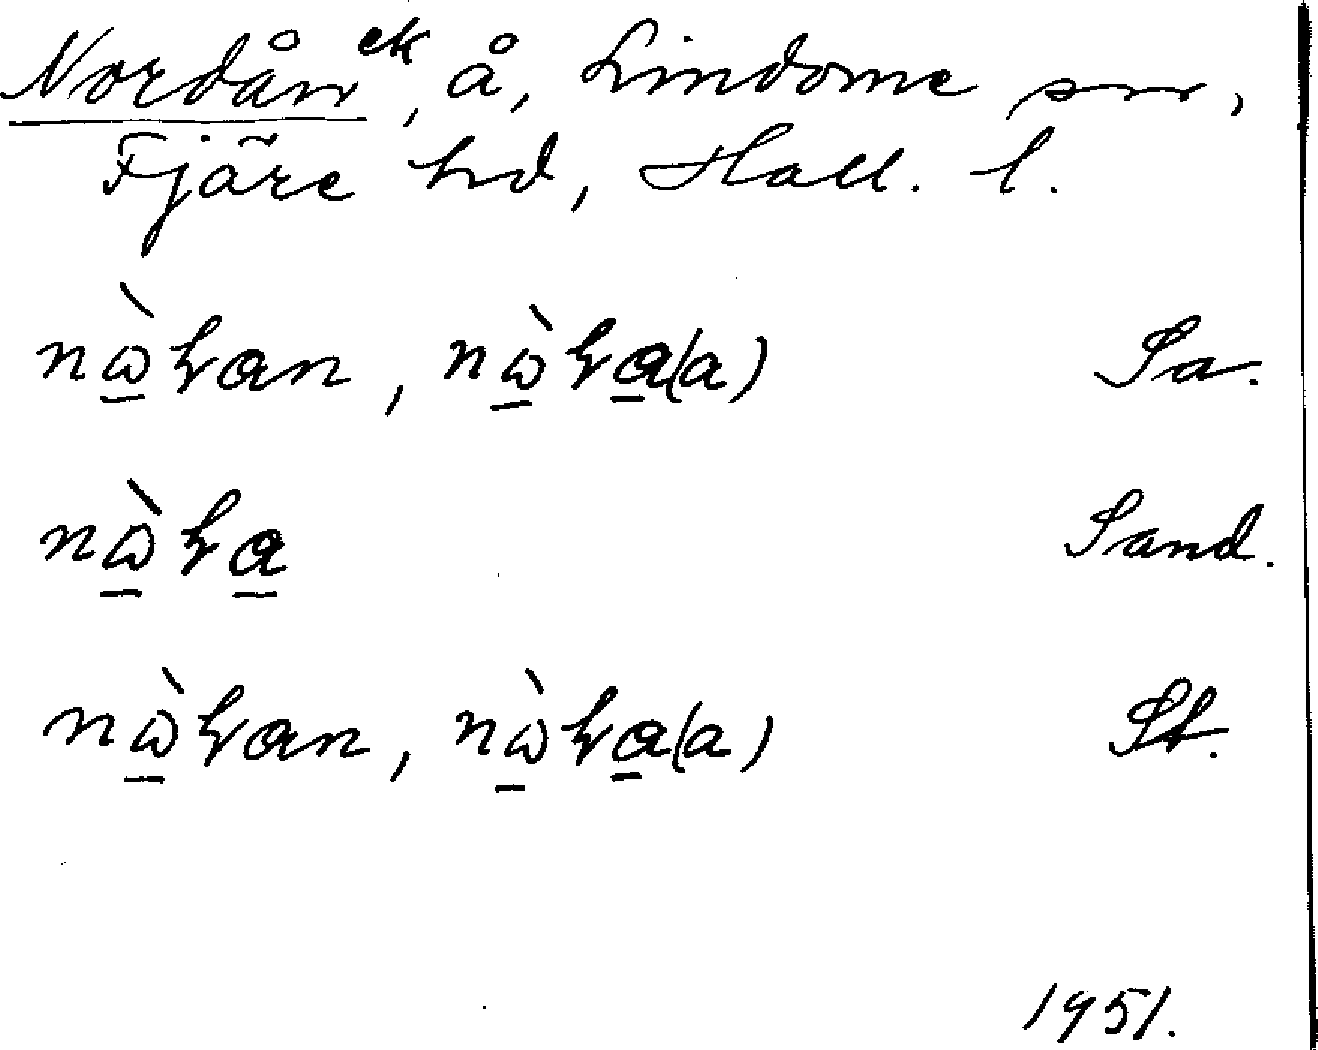 Nordån ek, å, Lindome sn,
Fjäre hd, Hall. l.
nὼꝛan, nὼꝛa(a) Sa.
nὼꝛa Sand.
nὼꝛan, nὼꝛa(a) St.
1951.